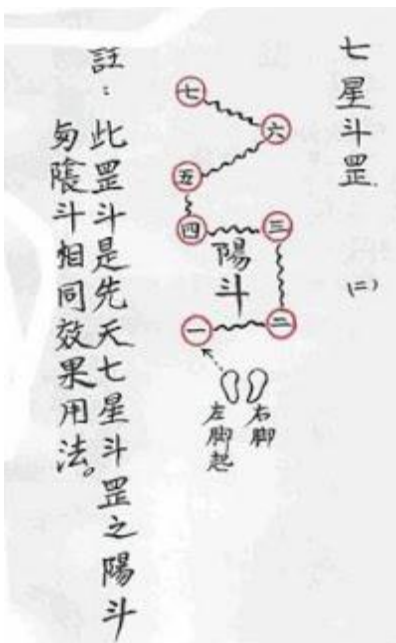 七星斗罡
(二)
七
六
五
四
三
陽斗
一
二
右脚
左脚起
註：此罡斗是先天七星斗罡之陽斗
与陰斗相同效果用法。